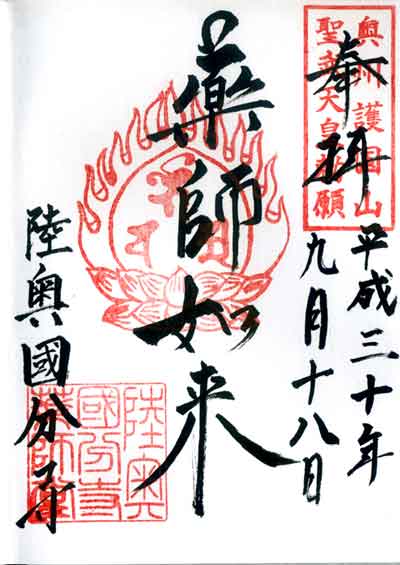 奥州護国山
聖武天皇勅願
奉拝
平成三十年
九月十八日
薬師如来
陸奥國分寺
陸奥
國分寺
薬師堂